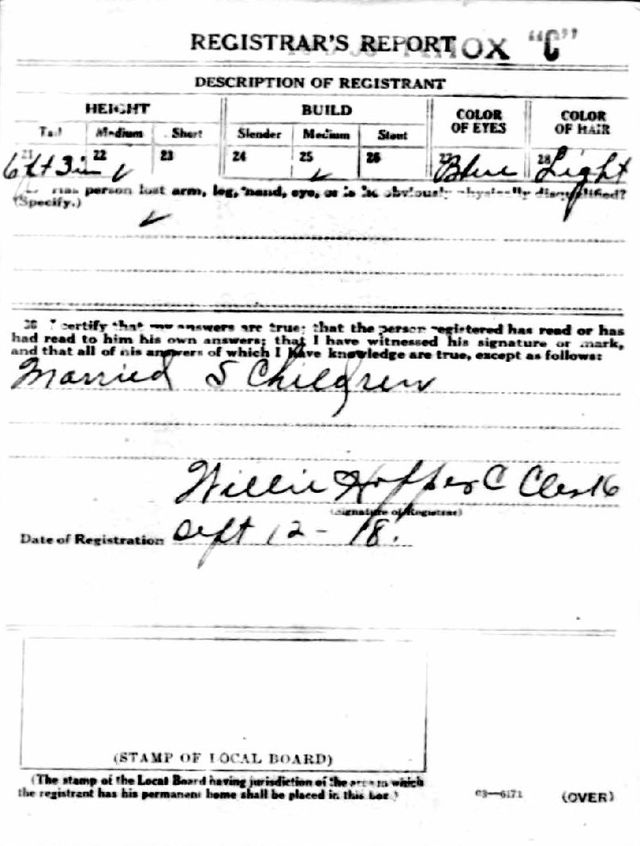 REGISTRAR'S REPORT "C"
DESCRIPTION OF REGISTRANT
HEIGHT BUILD COLOR OF EYES COLOR OF HAIR
Tall Medium Short Slender Medium Stout
21 22 23 24 25 26 27 28
6 ft 3 in ✓ ✓ Blue Light
Has person lost arm, leg, hand, eye, or is he obviously physically disqualified?
(Specify.)
✓
30 I certify that my answers are true; that the person registered has read or has
had read to him his own answers; that I have witnessed his signature or mark,
and that all of his answers of which I have knowledge are true, except as follows:
Married 5 Children
Willie C
(Signature of Registrar)
Date of Registration Sept 12 - 18.
(STAMP OF LOCAL BOARD)
(The stamp of the Local Board having jurisdiction of the area in which
the registrant has his permanent home shall be placed in this box.)
03—6171 (OVER)